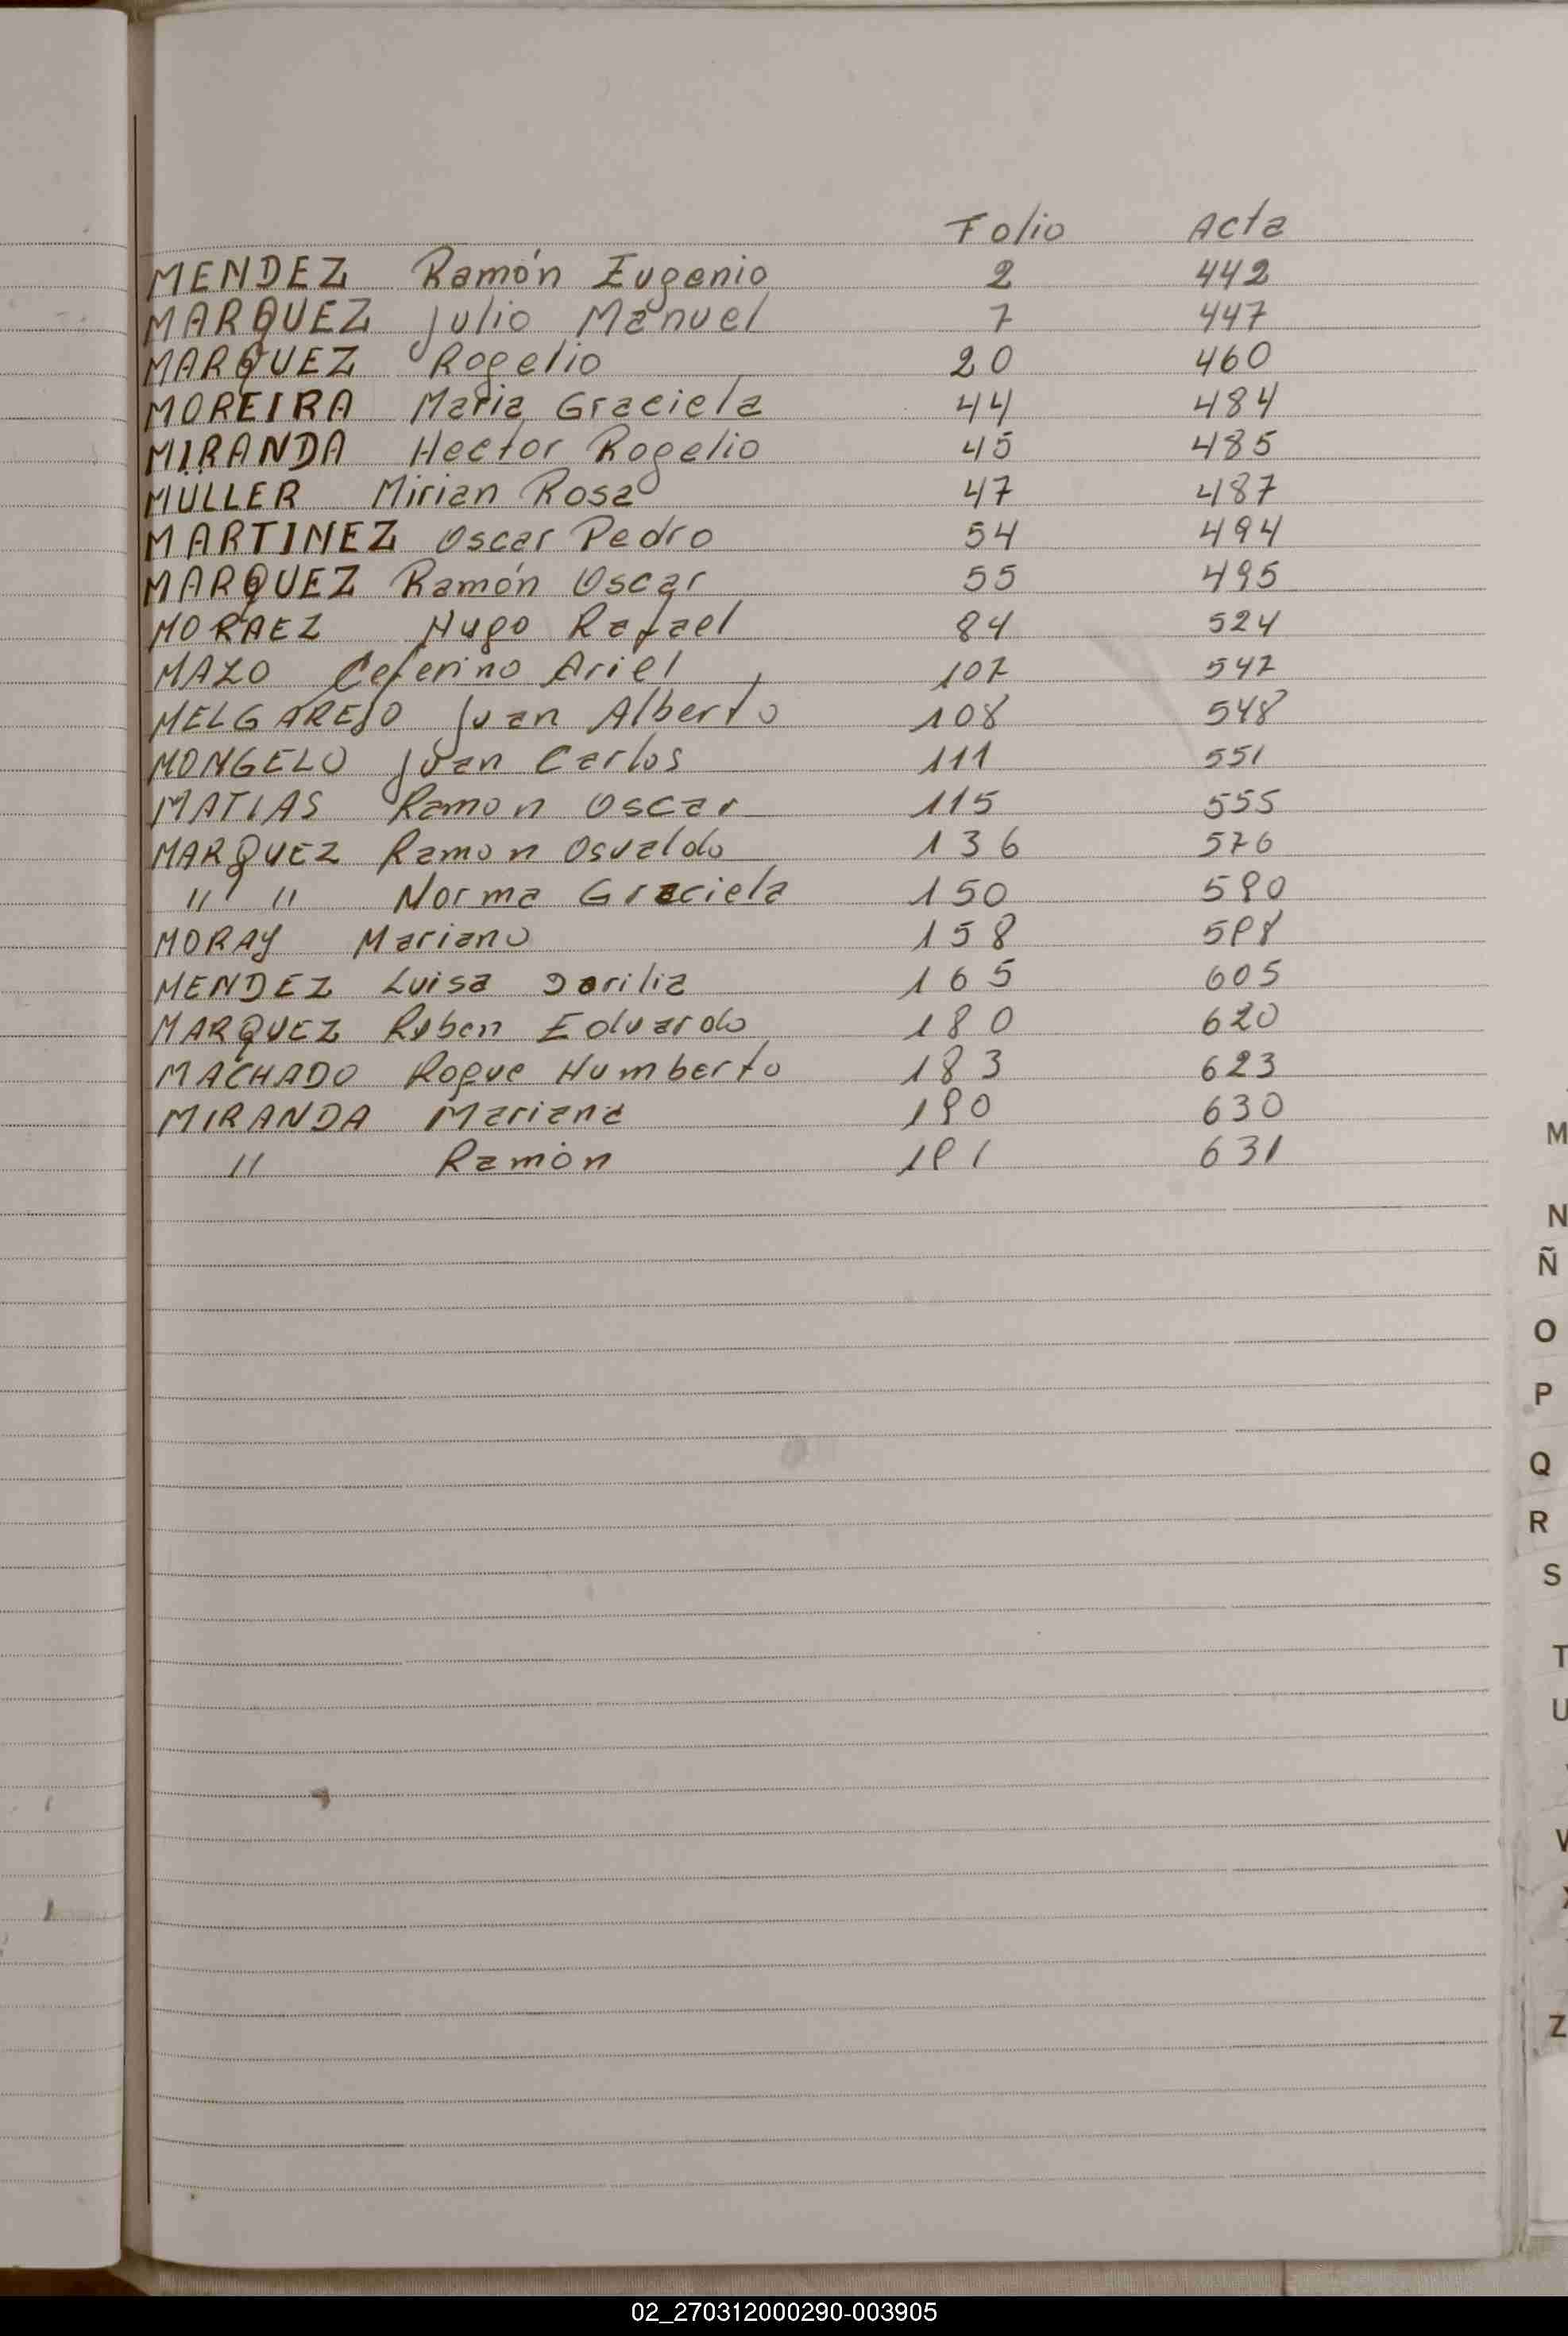 Folio Acta
MENDEZ Ramón Eugenio 2 442
MARQUEZ Julio Manuel 7 447
MARQUEZ Rogelio 20 460
MOREIRA Maria Graciela 44 484
MIRANDA Hector Rogelio 45 485
MÜLLER Mirian Rosa 47 487
MARTINEZ Oscar Pedro 54 494
MARQUEZ Ramón Oscar 55 495
MORAEZ Hugo Rafael 84 524
MAZO Ceferino Ariel 107 547
MELGAREJO Juan Alberto 108 548
MONGELO Juan Carlos 111 551
MATIAS Ramon Oscar 115 555
MARQUEZ Ramon Osvaldo 136 576
" " Norma Graciela 150 590
MORAY Mariano 158 598
MENDEZ Luisa Dorilia 165 605
MARQUEZ Ruben Eduardo 180 620
MACHADO Roque Humberto 183 623
MIRANDA Mariana 190 630
" Ramón 191 631
M
N
Ñ
O
P
Q
R
S
T
U
V
Z
02_270312000290-003905